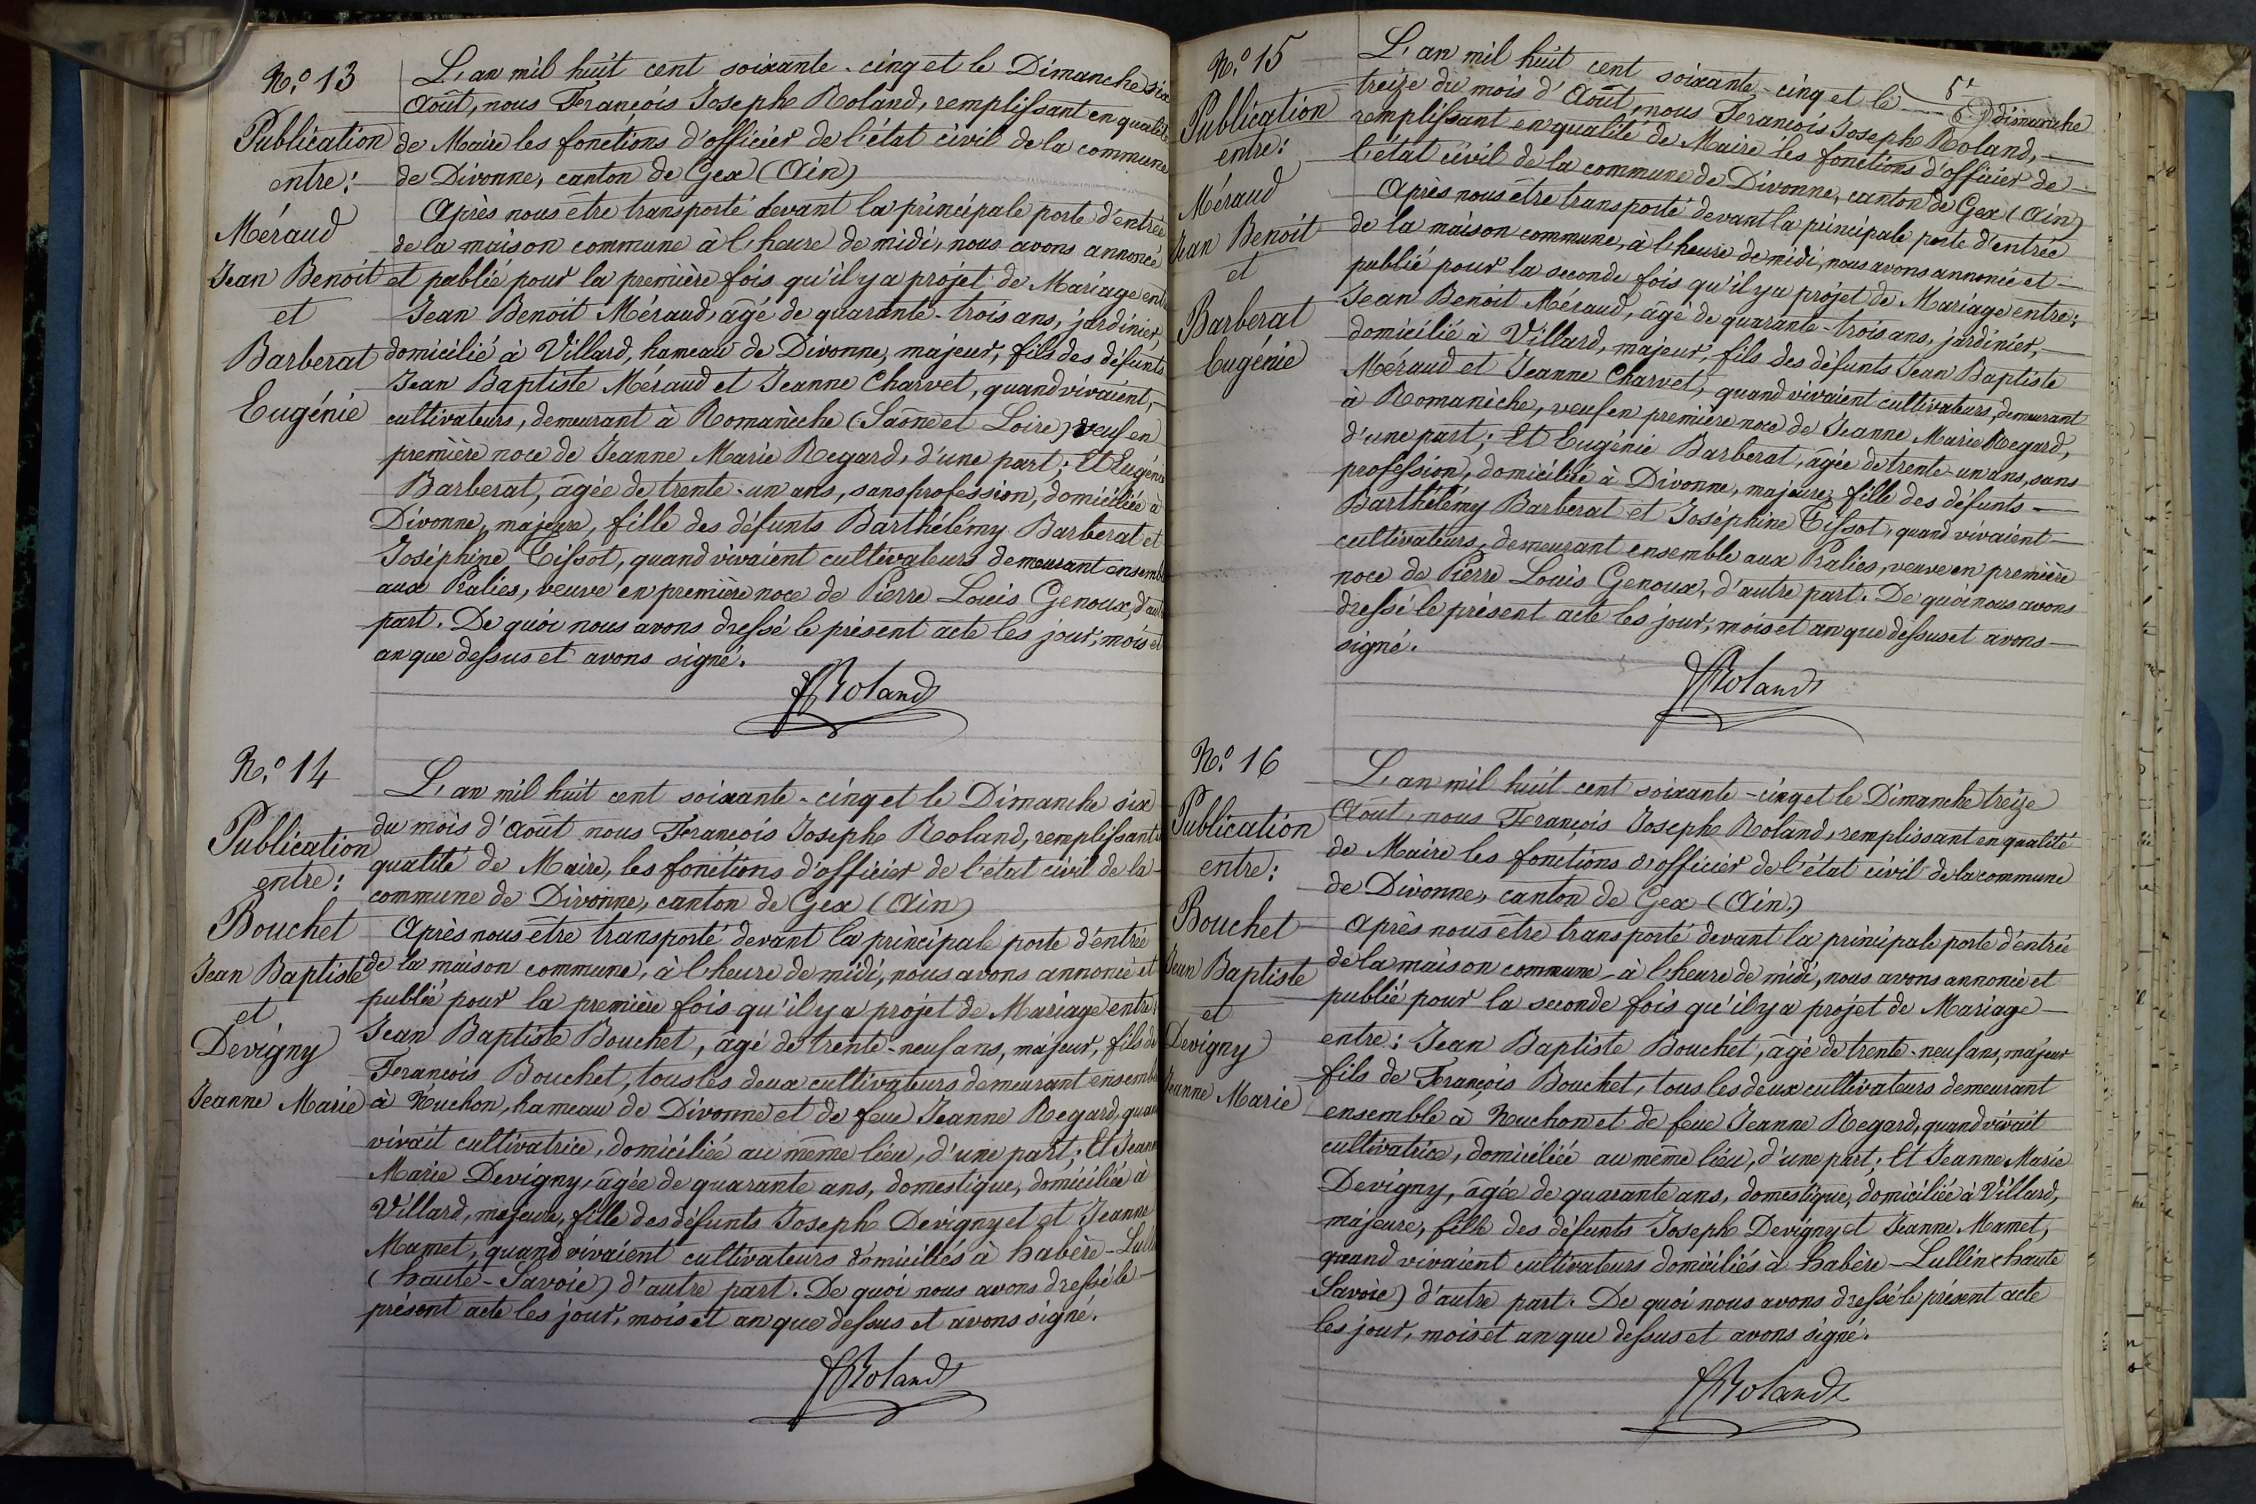 N.° 13
Publication
entre:
Méraud
Jean Benoit
et
Barberat
Eugénie
L'an mil huit cent soixante-cinq et le Dimanche six
Août, nous François Joseph Roland, remplissant en qualité
de Maire les fonctions d'officier de l'état civil de la commune
de Divonne, canton de Gex (Ain)
Après nous être transporté devant la principale porte d'entrée
de la maison commune à l'heure de midi, nous avons annoncé
et publié pour la première fois qu'il y a projet de Mariage entre
Jean Benoit Méraud, âgé de quarante-trois ans, jardinier,
domicilié à Villard, hameau de Divonne, majeur, fils des défunts
Jean Baptiste Méraud et Jeanne Charvet, quand vivaient,
cultivateurs, demeurant à Romanèche (Saône et Loire) veuf en
première noce de Jeanne Marie Regard, d'une part; Et Eugénie
Barberat, âgée de trente-un ans, sans profession, domiciliée à
Divonne, majeure, fille des défunts Barthélémy Barberat et
Joséphine Tissot, quand vivaient cultivateurs demeurant ensemb
aux Pralies, veuve en première noce de Pierre Louis Genoux, d'autr
part. De quoi nous avons dressé le présent acte les jour, mois et
an que dessus et avons signé.
Roland
N.° 14
Publication
entre:
Bouchet
Jean Baptiste
et
Devigny
Jeanne Marie
L'an mil huit cent soixante-cinq et le Dimanche six
du mois d'Août nous François Joseph Roland, remplissant
qualité de Maire, les fonctions d'officier de l'état civil de la
commune de Divonne, canton de Gex (Ain)
Après nous être transporté devant la principale porte d'entrée
de la maison commune, à l'heure de midi, nous avons annoncé et
publié pour la première fois qu'il y a projet de Mariage entre
Jean Baptiste Bouchet, âgé de trente-neuf ans, majeur, fils de
François Bouchet, tous les deux cultivateurs demeurant ensemb
à Ruchon, hameau de Divonne et de feue Jeanne Regard, quan
vivait cultivatrice, domiciliée au même lieu, d'une part; Et Jeann
Marie Devigny, âgée de quarante ans, domestique, domiciliée à
Villard, majeure, fille des défunts Joseph Devigny et et Jeanne
Mamet, quand vivaient cultivateurs domiciliés à habère-Lulli
(haute-Savoie) d'autre part. De quoi nous avons dressé le
présent acte les jour, mois et an que dessus et avons signé.
Roland
N.° 15
Publication
entre:
Méraud
Jean Benoit
et
Barberat
Eugénie
L'an mil huit cent soixante-cinq et le dimanche
treize du mois d'Août, nous François Joseph Roland,
remplissant en qualité de Maire les fonctions d'officier de
l'état civil de la commune de Divonne, canton de Gex (Ain)
Après nous être transporté devant la principale porte d'entrée
de la maison commune, à l'heure de midi, nous avons annoncé et
publié pour la seconde fois qu'il y a projet de Mariage entre:
Jean Benoit Méraud, âgé de quarante-trois ans, jardinier,
domicilié à Villard, majeur, fils des défunts Jean Baptiste
Méraud et Jeanne Charvet, quand vivaient cultivateurs, demeurant
à Romanèche, veuf en première noce de Jeanne Marie Regard,
d'une part; Et Eugénie Barberat, âgée de trente-un ans, sans
profession, domiciliée à Divonne, majeure, fille des défunts
Barthélémy Barberat et Joséphine Tissot, quand vivaient
cultivateurs, demeurant ensemble aux Pralies, veuve en première
noce de Pierre Louis Genoux, d'autre part. De quoi nous avons
dressé le présent acte les jour, mois et an que dessus et avons
signé.
Roland
N.° 16
Publication
entre:
Bouchet
Jean Baptiste
et
Devigny
Jeanne Marie
L'an mil huit cent soixante-cinq et le Dimanche treize
Août, nous François Joseph Roland, remplissant en qualité
de Maire les fonctions d'officier de l'état civil de la commune
de Divonne, canton de Gex (Ain.)
Après nous être transporté devant la principale porte d'entrée
de la maison commune à l'heure de midi, nous avons annoncé et
publié pour la seconde fois qu'il y a projet de Mariage
entre: Jean Baptiste Bouchet, âgé de trente-neuf ans, majeur
fils de François Bouchet, tous les deux cultivateurs demeurant
ensemble à Ruchon et de feue Jeanne Regard, quand vivait
cultivatrice, domiciliée au même lieu, d'une part; Et Jeanne Marie
Devigny, âgée de quarante ans, domestique, domiciliée à Villard,
majeure, fille des défunts Joseph Devigny et Jeanne Mamet,
quand vivaient cultivateurs domiciliés à habère-Lullin (haute
Savoie) d'autre part. De quoi nous avons dressé le présent acte
les jour, mois et an que dessus et avons signé.
Roland